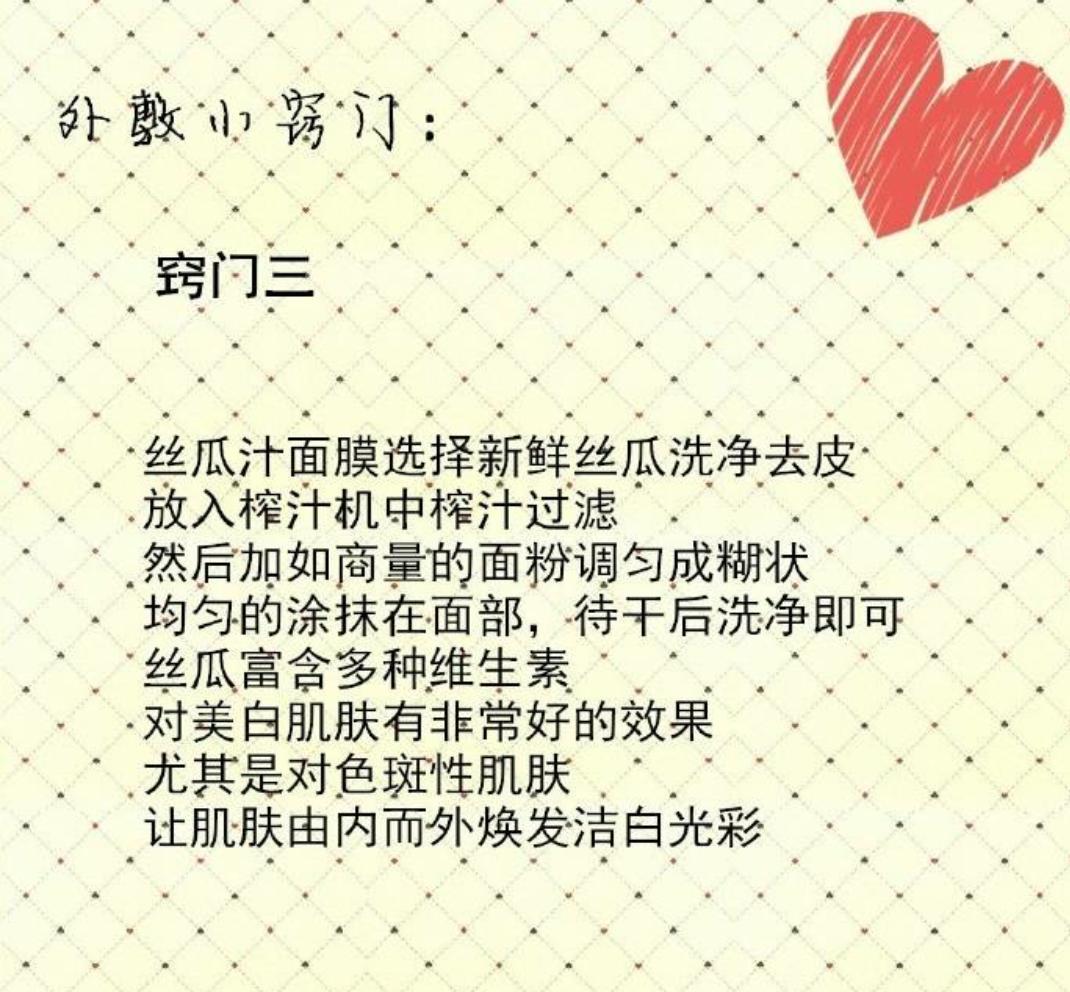 外敷小窍门：
窍门三
丝瓜汁面膜选择新鲜丝瓜洗净去皮
放入榨汁机中榨汁过滤
然后加如商量的面粉调匀成糊状
均匀的涂抹在面部，待干后洗净即可
丝瓜富含多种维生素
对美白肌肤有非常好的效果
尤其是对色斑性肌肤
让肌肤由内而外焕发洁白光彩